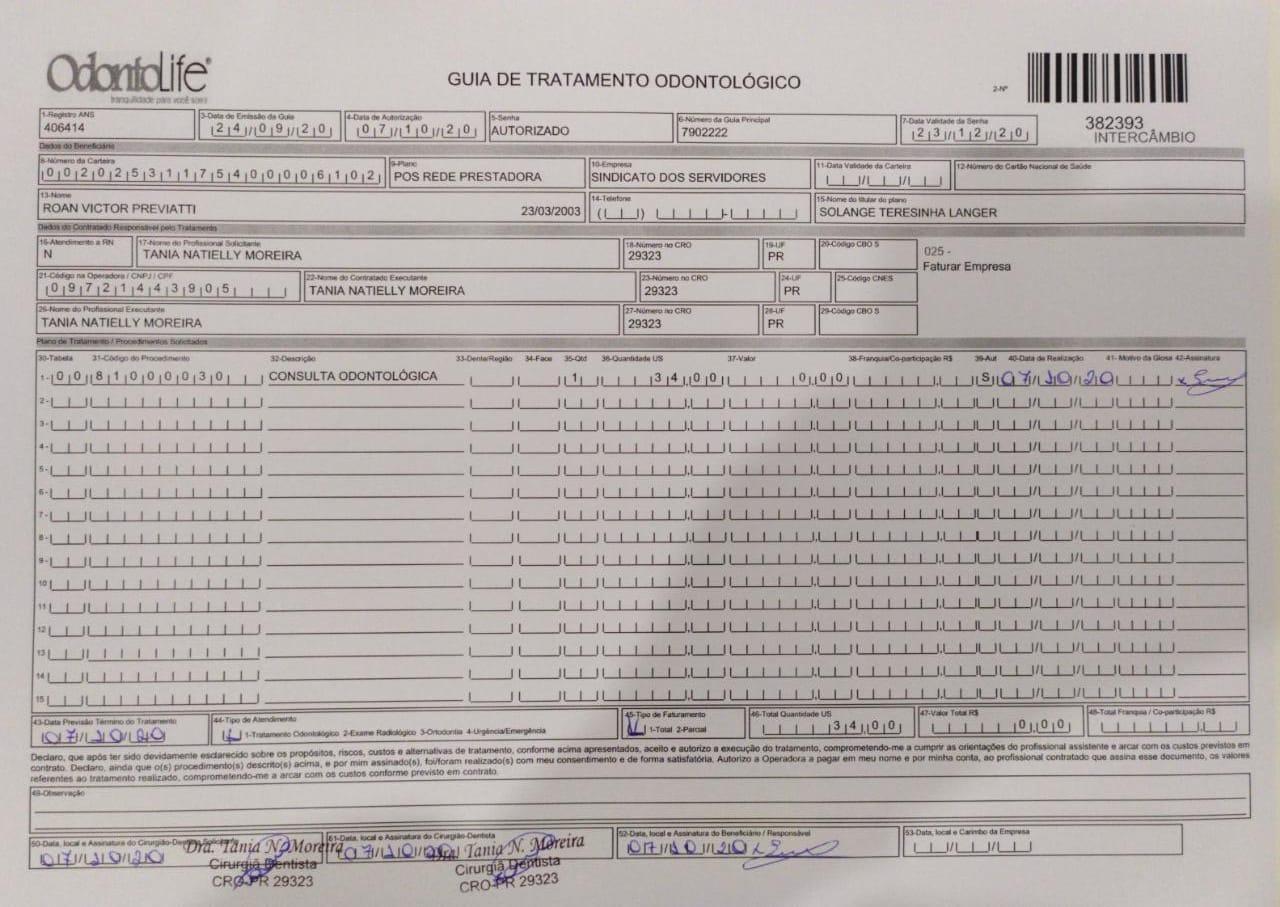 OdontoLife®
tranquilidade para você sorrir
GUIA DE TRATAMENTO ODONTOLÓGICO
2-Nº
382393
INTERCÂMBIO
1-Registro ANS
406414
3-Data de Emissão da Guia
24/09/20
4-Data de Autorização
07/10/20
5-Senha
AUTORIZADO
6-Número da Guia Principal
7902222
7-Data Validade da Senha
23/12/20
Dados do Beneficiário
8-Número da Carteira
00202531175400006102
9-Plano
POS REDE PRESTADORA
10-Empresa
SINDICATO DOS SERVIDORES
11-Data Validade da Carteira
12-Número do Cartão Nacional de Saúde
13-Nome
ROAN VICTOR PREVIATTI 23/03/2003
14-Telefone
15-Nome do titular do plano
SOLANGE TERESINHA LANGER
Dados do Contratado Responsável pelo Tratamento
16-Atendimento a RN
N
17-Nome do Profissional Solicitante
TANIA NATIELLY MOREIRA
18-Número no CRO
29323
19-UF
PR
20-Código CBO S
025 -
Faturar Empresa
21-Código na Operadora / CNPJ / CPF
09721443905
22-Nome do Contratado Executante
TANIA NATIELLY MOREIRA
23-Número no CRO
29323
24-UF
PR
25-Código CNES
26-Nome do Profissional Executante
TANIA NATIELLY MOREIRA
27-Número no CRO
29323
28-UF
PR
29-Código CBO S
Plano de Tratamento / Procedimentos Solicitados
30-Tabela 31-Código do Procedimento 32-Descrição 33-Dente/Região 34-Face 35-Qtd 36-Quantidade US 37-Valor 38-Franquia/Co-participação R$ 39-Aut 40-Data de Realização 41- Motivo da Glosa 42-Assinatura
1- 00 81000030 CONSULTA ODONTOLÓGICA 1 34,00 0,00 S 07/10/20
2-
3-
4-
5-
6-
7-
8-
9-
10
11
12
13
14
15
43-Data Previsão Término do Tratamento
07/10/20
44-Tipo de Atendimento
1-Tratamento Odontológico 2-Exame Radiológico 3-Ortodontia 4-Urgência/Emergência
45-Tipo de Faturamento
1-Total 2-Parcial
46-Total Quantidade US
34,00
47-Valor Total R$
0,00
48-Total Franquia / Co-participação R$
Declaro, que após ter sido devidamente esclarecido sobre os propósitos, riscos, custos e alternativas de tratamento, conforme acima apresentados, aceito e autorizo a execução do tratamento, comprometendo-me a cumprir as orientações do profissional assistente e arcar com os custos previstos em
contrato. Declaro, ainda que o(s) procedimento(s) descrito(s) acima, e por mim assinado(s), foi/foram realizado(s) com meu consentimento e de forma satisfatória. Autorizo a Operadora a pagar em meu nome e por minha conta, ao profissional contratado que assina esse documento, os valores
referentes ao tratamento realizado, comprometendo-me a arcar com os custos conforme previsto em contrato.
49-Observação
50-Data, local e Assinatura do Cirurgião-Dentista Solicitante
07/10/20
Dra. Tânia N. Moreira
Cirurgiã Dentista
CRO-PR 29323
51-Data, local e Assinatura do Cirurgião-Dentista
07/10/20
Dra. Tania N. Moreira
Cirurgiã Dentista
CRO-PR 29323
52-Data, local e Assinatura do Beneficiário / Responsável
07/10/20
53-Data, local e Carimbo da Empresa